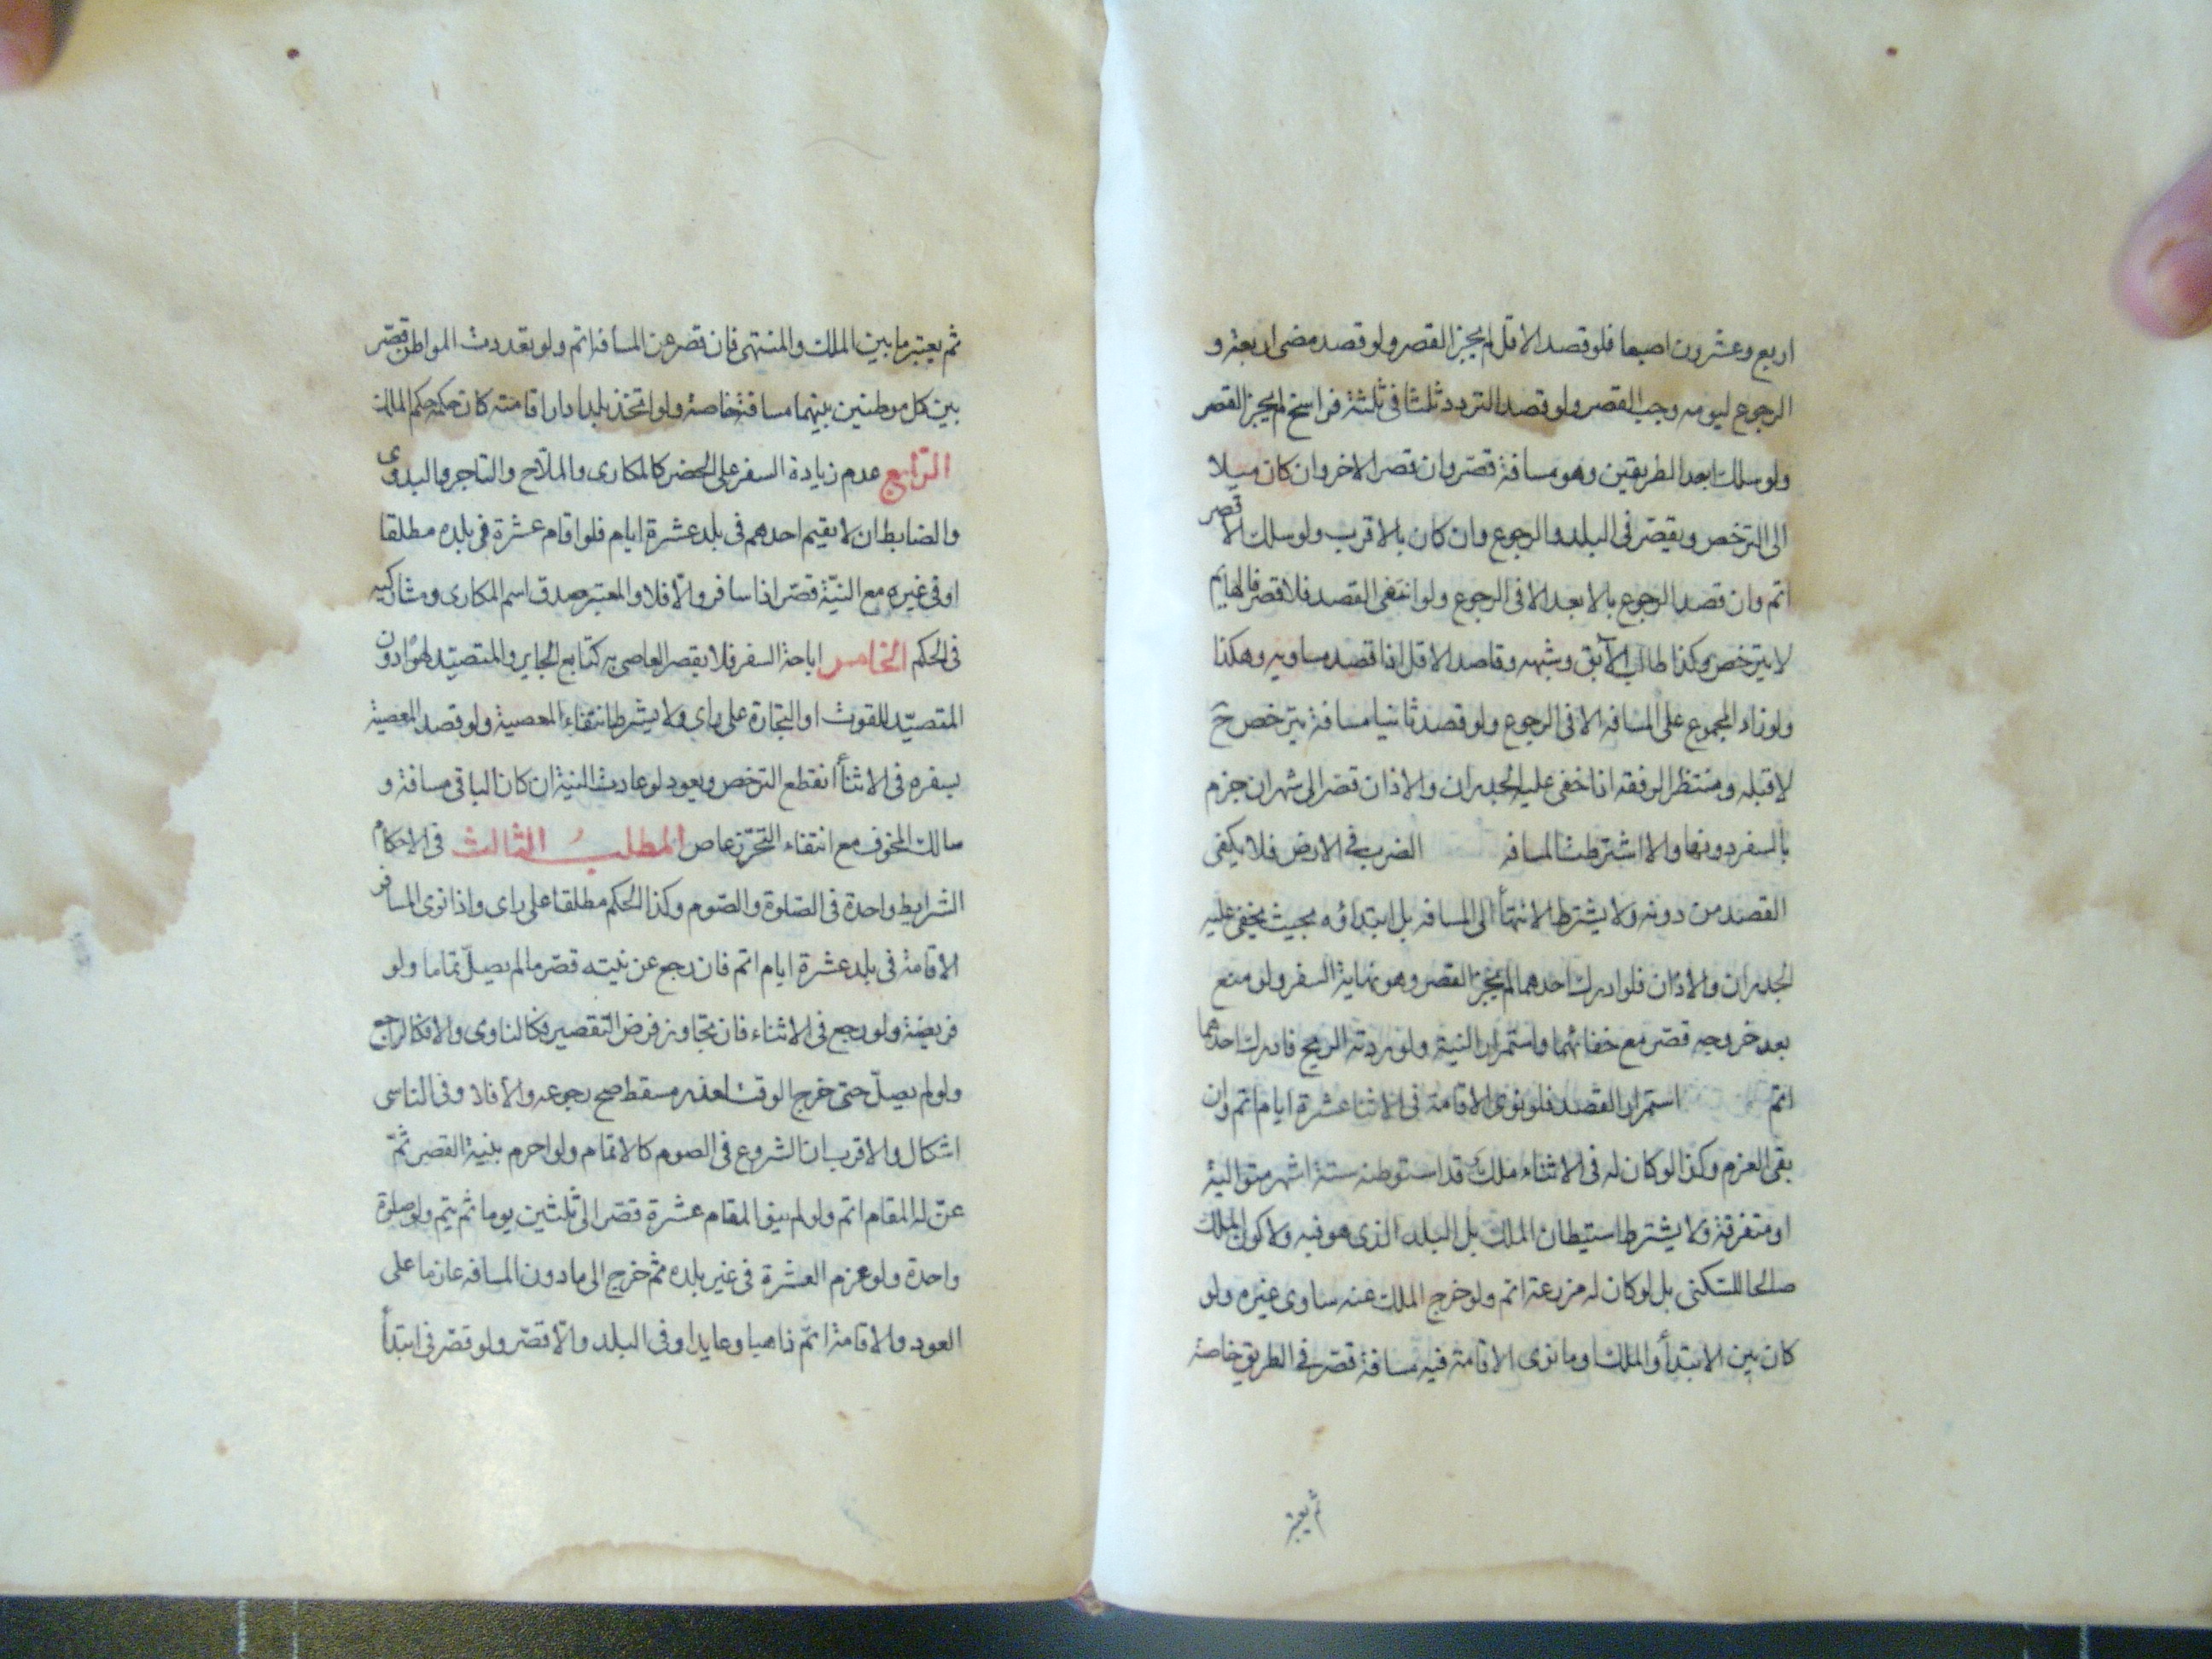 اربع وعشرون اصبعا فلو قصد الاقل لم يجز القصر ولو قصد مضى اربعة و
الرجوع ليومه وجب القصر ولو قصد التردد ثلثا فى ثلثة فراسخ لم يجز القصر
ولو سلك ابعد الطريقين وهو مسافة قصر وان قصر الاخر وان كان ميلا
الى الترخص ويقصر فى البلد والرجوع وان كان بالاقرب ولو سلك الاقصر
اتم وان قصد الرجوع بالابعد الا فى الرجوع ولو انتفى القصد فلا قصر فالهايم
لا يترخص وكذا طالب الآبق وشبهه وقاصد الاقل اذا قصد مساويه وهكذا
ولو زاد المجموع على المسافه الا فى الرجوع ولو قصد ثانيا مسافة يترخص ح
لا قبله ومنتظر الرفقه اذا خفى عليه الجدران والاذان قصر الى شهر ان جزم
بالسفر دونها والا اشترطت المسافه الضرب فى الارض فلا يكفى
القصد من دونه ولا يشترط الانتهأ الى المسافه بل ابتداؤه بحيث يخفى عليه
الجدران والاذان فلو ادرك احدهما لم يجز القصر وهو نهاية السفر ولو منع
بعد خروجه قصر مع خفائهما واستمرار النية ولو ردته الريح فادرك احدهما
اتم استمرار القصد فلو نوى الاقامة فى الاثنا عشرة ايام اتم وان
بقى العزم وكذا لو كان له فى الاثناء ملك قد استوطنه ستة اشهر متوالية
او متفرقة ولا يشترط استيطان الملك بل البلد الذى هو فيه ولا كون الملك
صالحا للسكنى بل لو كان له مزرعة اتم ولو خرج الملك عنه ساوى غيره ولو
كان بين الابتدأ والملك او ما نوى الاقامة فيه مسافة قصر فى الطريق خاصة
ثم يعتبر
ثم يعتبر ما بين الملك والمنتهى فان قصر عن المسافه اتم ولو تعددت المواطن قصر
بين كل موطنين بينهما مسافة خاصة ولو اتخذ بلدا دار اقامته كان حكمه حكم الملك
الرّابع عدم زيادة السفر على الحضر كالمكارى والملّاح والتاجر والبدوى
والضابط ان لا يقيم احدهم فى بلد عشرة ايام فلو اقام عشرة فى بلده مطلقا
او فى غيره مع النيّة قصّر اذا سافر والّا فلا والمعتبر صدق اسم المكارى ومشاركيه
فى الحكم الخامس اباحة السفر فلا يقصر العاصى به كتابع الجاير والمتصيّد لهوا دون
المتصيّد للقوت او التجارة على راى ولا يشترط انتفاء المعصية ولو قصد المعصية
بسفره فى الاثنأ انقطع الترخص ويعود لو عادت النية ان كان الباقى مسافة و
سالك المخوف مع انتفاء التحرّز عاص المطلب الثالث فى الاحكام
الشرايط واحدة فى الصّلوة والصّوم وكذا الحكم مطلقا على راى واذا نوى المسافر
الاقامة فى بلد عشرة ايام اتم فان رجع عن نيته قصّر ما لم يصلّ تماما ولو
فريضة ولو رجع فى الاثناء فان تجاوز فرض التقصير فكالناوى والا فكالراجع
ولو لم يصلّ حتى خرج الوقت لعذر مسقط صح رجوعه والا فلا وفى الناسى
اشكال والاقرب ان الشروع فى الصوم كالاتمام ولو احرم بنية القصر ثمّ
عنّ له المقام اتم ولو لم ينو المقام عشرة قصّر الى ثلثين يوما ثم يتم ولو صلوة
واحدة ولو عزم العشرة فى غير بلده ثم خرج الى مادون المسافه عازما على
العود والاقامة اتمّ ذاهبا وعايدا وفى البلد والّا قصّر ولو قصّر فى ابتدأ